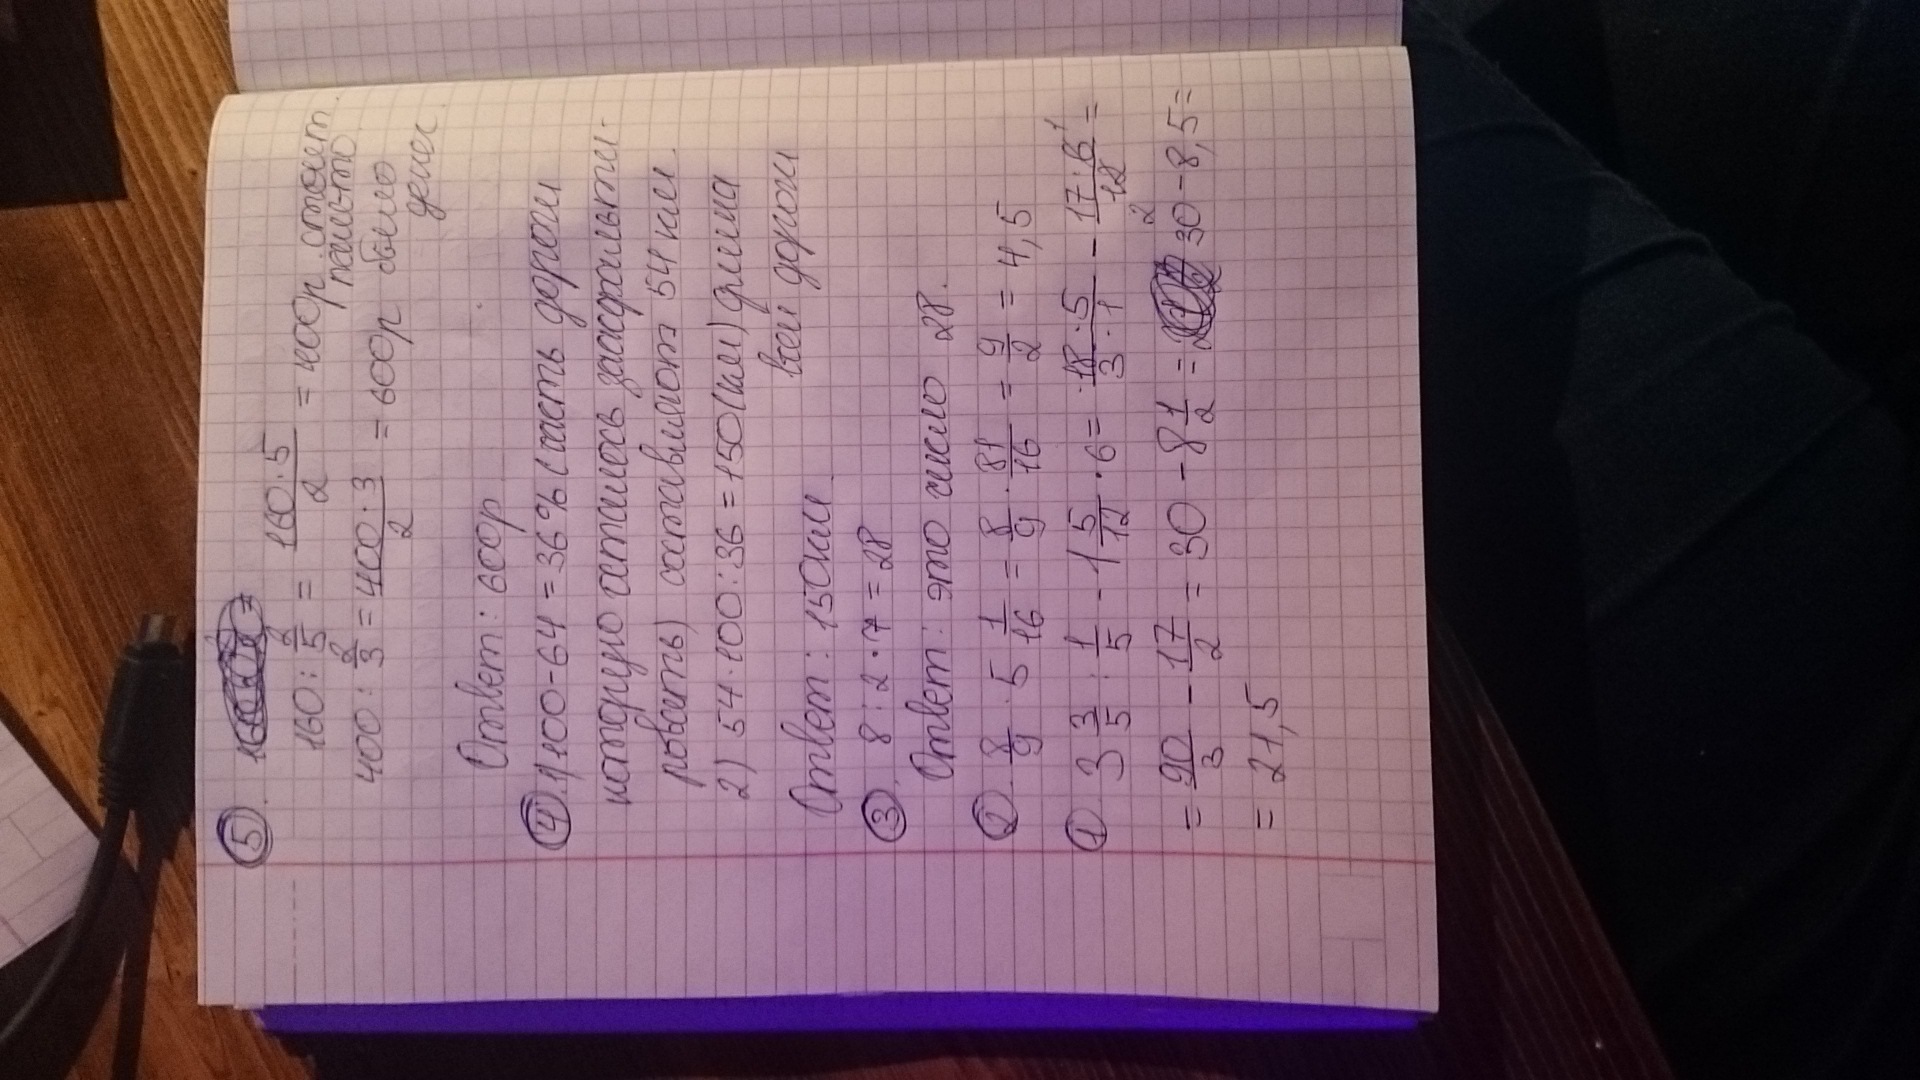 ⑤.
160 : 2/5 = 160·5/2 = 400р. стоит пальто
400 : 2/3 = 400·3/2 = 600р было денег.
Ответ: 600р
④. 1) 100-64 = 36% (часть дороги
которую осталось заасфальти-
ровать) составляют 54 км.
2) 54·100:36 = 150(км) длина
всей дороги
Ответ: 150км.
③. 8 : 2 · 7 = 28
Ответ: это число 28.
②. 8/9 · 5 1/16 = 8/9 · 81/16 = 9/2 = 4,5
① 3 3/5 : 1/5 - 1 5/12 · 6 = 18·5/3·1 - 17·6 1/12 2 =
= 90/3 - 17/2 = 30 - 8 1/2 = 30 - 8,5 =
= 21,5